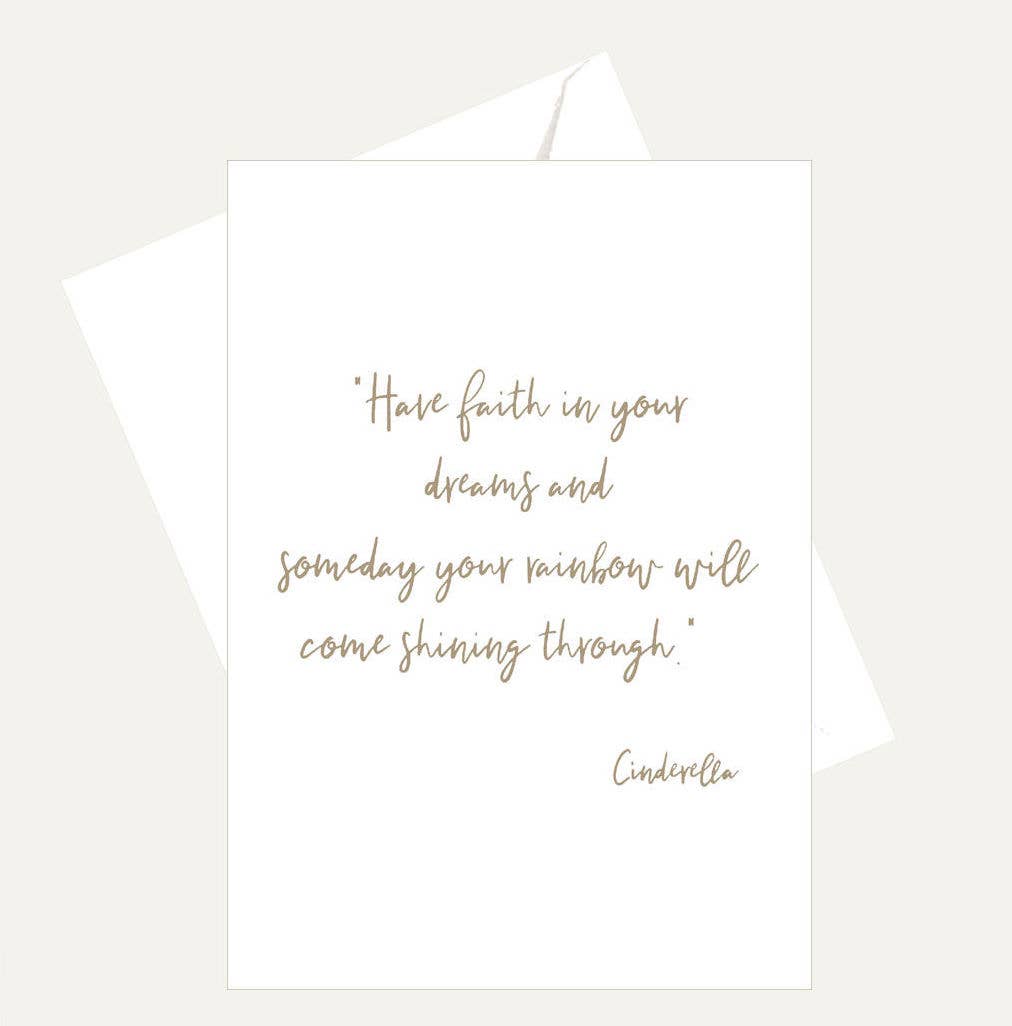 "Have faith in your
dreams and
someday your rainbow will
come shining through."
Cinderella